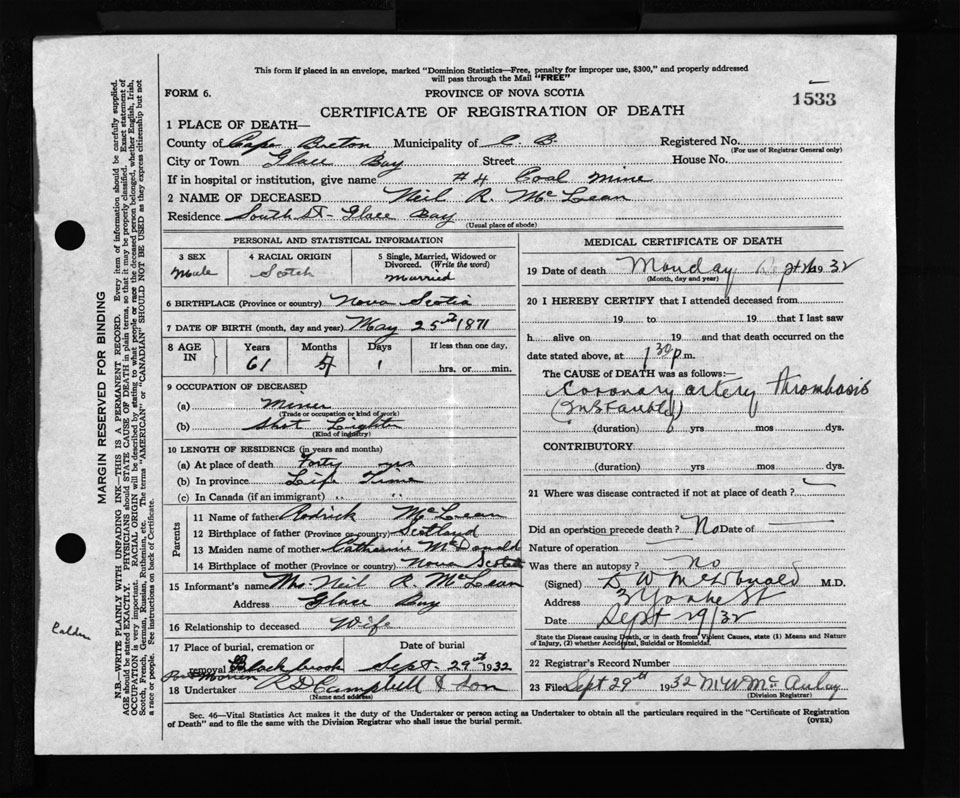 This form if placed in an envelope, marked "Dominion Statistics—Free, penalty for improper use, $300," and properly addressed
will pass through the Mail "FREE"
FORM 6.
PROVINCE OF NOVA SCOTIA
1533
CERTIFICATE OF REGISTRATION OF DEATH
1 PLACE OF DEATH—
County of Cape Breton Municipality of C. B. Registered No.
(For use of Registrar General only)
City or Town Glace Bay Street House No.
If in hospital or institution, give name #4 Coal Mine
2 NAME OF DECEASED Neil R. McLean
Residence South St- Glace Bay
(Usual place of abode)
PERSONAL AND STATISTICAL INFORMATION
3 SEX
Male
4 RACIAL ORIGIN
Scotch
5 Single, Married, Widowed or
Divorced. (Write the word)
Married
6 BIRTHPLACE (Province or country) Nova Scotia
7 DATE OF BIRTH (month, day and year) May 25 1871
8 AGE IN
Years Months Days If less than one day,
61 1 hrs. or min.
9 OCCUPATION OF DECEASED
(a) Miner
(Trade or occupation or kind of work)
(b) Shot Lighter
(Kind of industry)
10 LENGTH OF RESIDENCE (in years and months)
(a) At place of death Forty yrs
(b) In province Life Time
(c) In Canada (if an immigrant) " "
Parents
11 Name of father Rodrick McLean
12 Birthplace of father (Province or country) Scotland
13 Maiden name of mother Catharine McDonald
14 Birthplace of mother (Province or country) Nova Scotia
15 Informant's name Mrs. Neil R. McLean
Address Glace Bay
16 Relationship to deceased Wife
17 Place of burial, cremation or
removal Black brook
Port Morien
Date of burial
Sept. 29 1932
18 Undertaker R D Campbell & Son
(Name and address)
MEDICAL CERTIFICATE OF DEATH
19 Date of death Monday 1932
(Month, day and year)
20 I HEREBY CERTIFY that I attended deceased from
19 to 19 that I last saw
h alive on 19 and that death occurred on the
date stated above, at 1 30 p.m.
The CAUSE of DEATH was as follows:
Coronary artery thrombosis
(duration) yrs mos dys.
CONTRIBUTORY
(duration) yrs mos dys.
21 Where was disease contracted if not at place of death?
Did an operation precede death? No Date of
Nature of operation
Was there an autopsy? no
(Signed) D W McDonald M.D.
Address St
Date Sept 29/32
State the Disease causing Death, or in death from Violent Causes, state (1) Means and Nature
of Injury, (2) whether Accidental, Suicidal or Homicidal.
22 Registrar's Record Number
23 Filed Sept 29th 1932 M W McAulay
(Division Registrar)
Sec. 46—Vital Statistics Act makes it the duty of the Undertaker or person acting as Undertaker to obtain all the particulars required in the "Certificate of Registration
of Death" and to file the same with the Division Registrar who shall issue the burial permit.
(OVER)
MARGIN RESERVED FOR BINDING
N.B.—WRITE PLAINLY WITH UNFADING INK—THIS IS A PERMANENT RECORD. Every item of information should be carefully supplied.
AGE should be stated EXACTLY. PHYSICIANS should STATE CAUSE OF DEATH in plain terms, so that it may be properly classified. Exact statement of
OCCUPATION is very important. RACIAL ORIGIN will be described by stating to what people or race the deceased person belonged, whether English, Irish,
Scotch, French, German, Russian, Ruthenian, etc. The terms "AMERICAN" or "CANADIAN" SHOULD NOT BE USED as they express citizenship but not
a race or people. See instructions on back of Certificate.